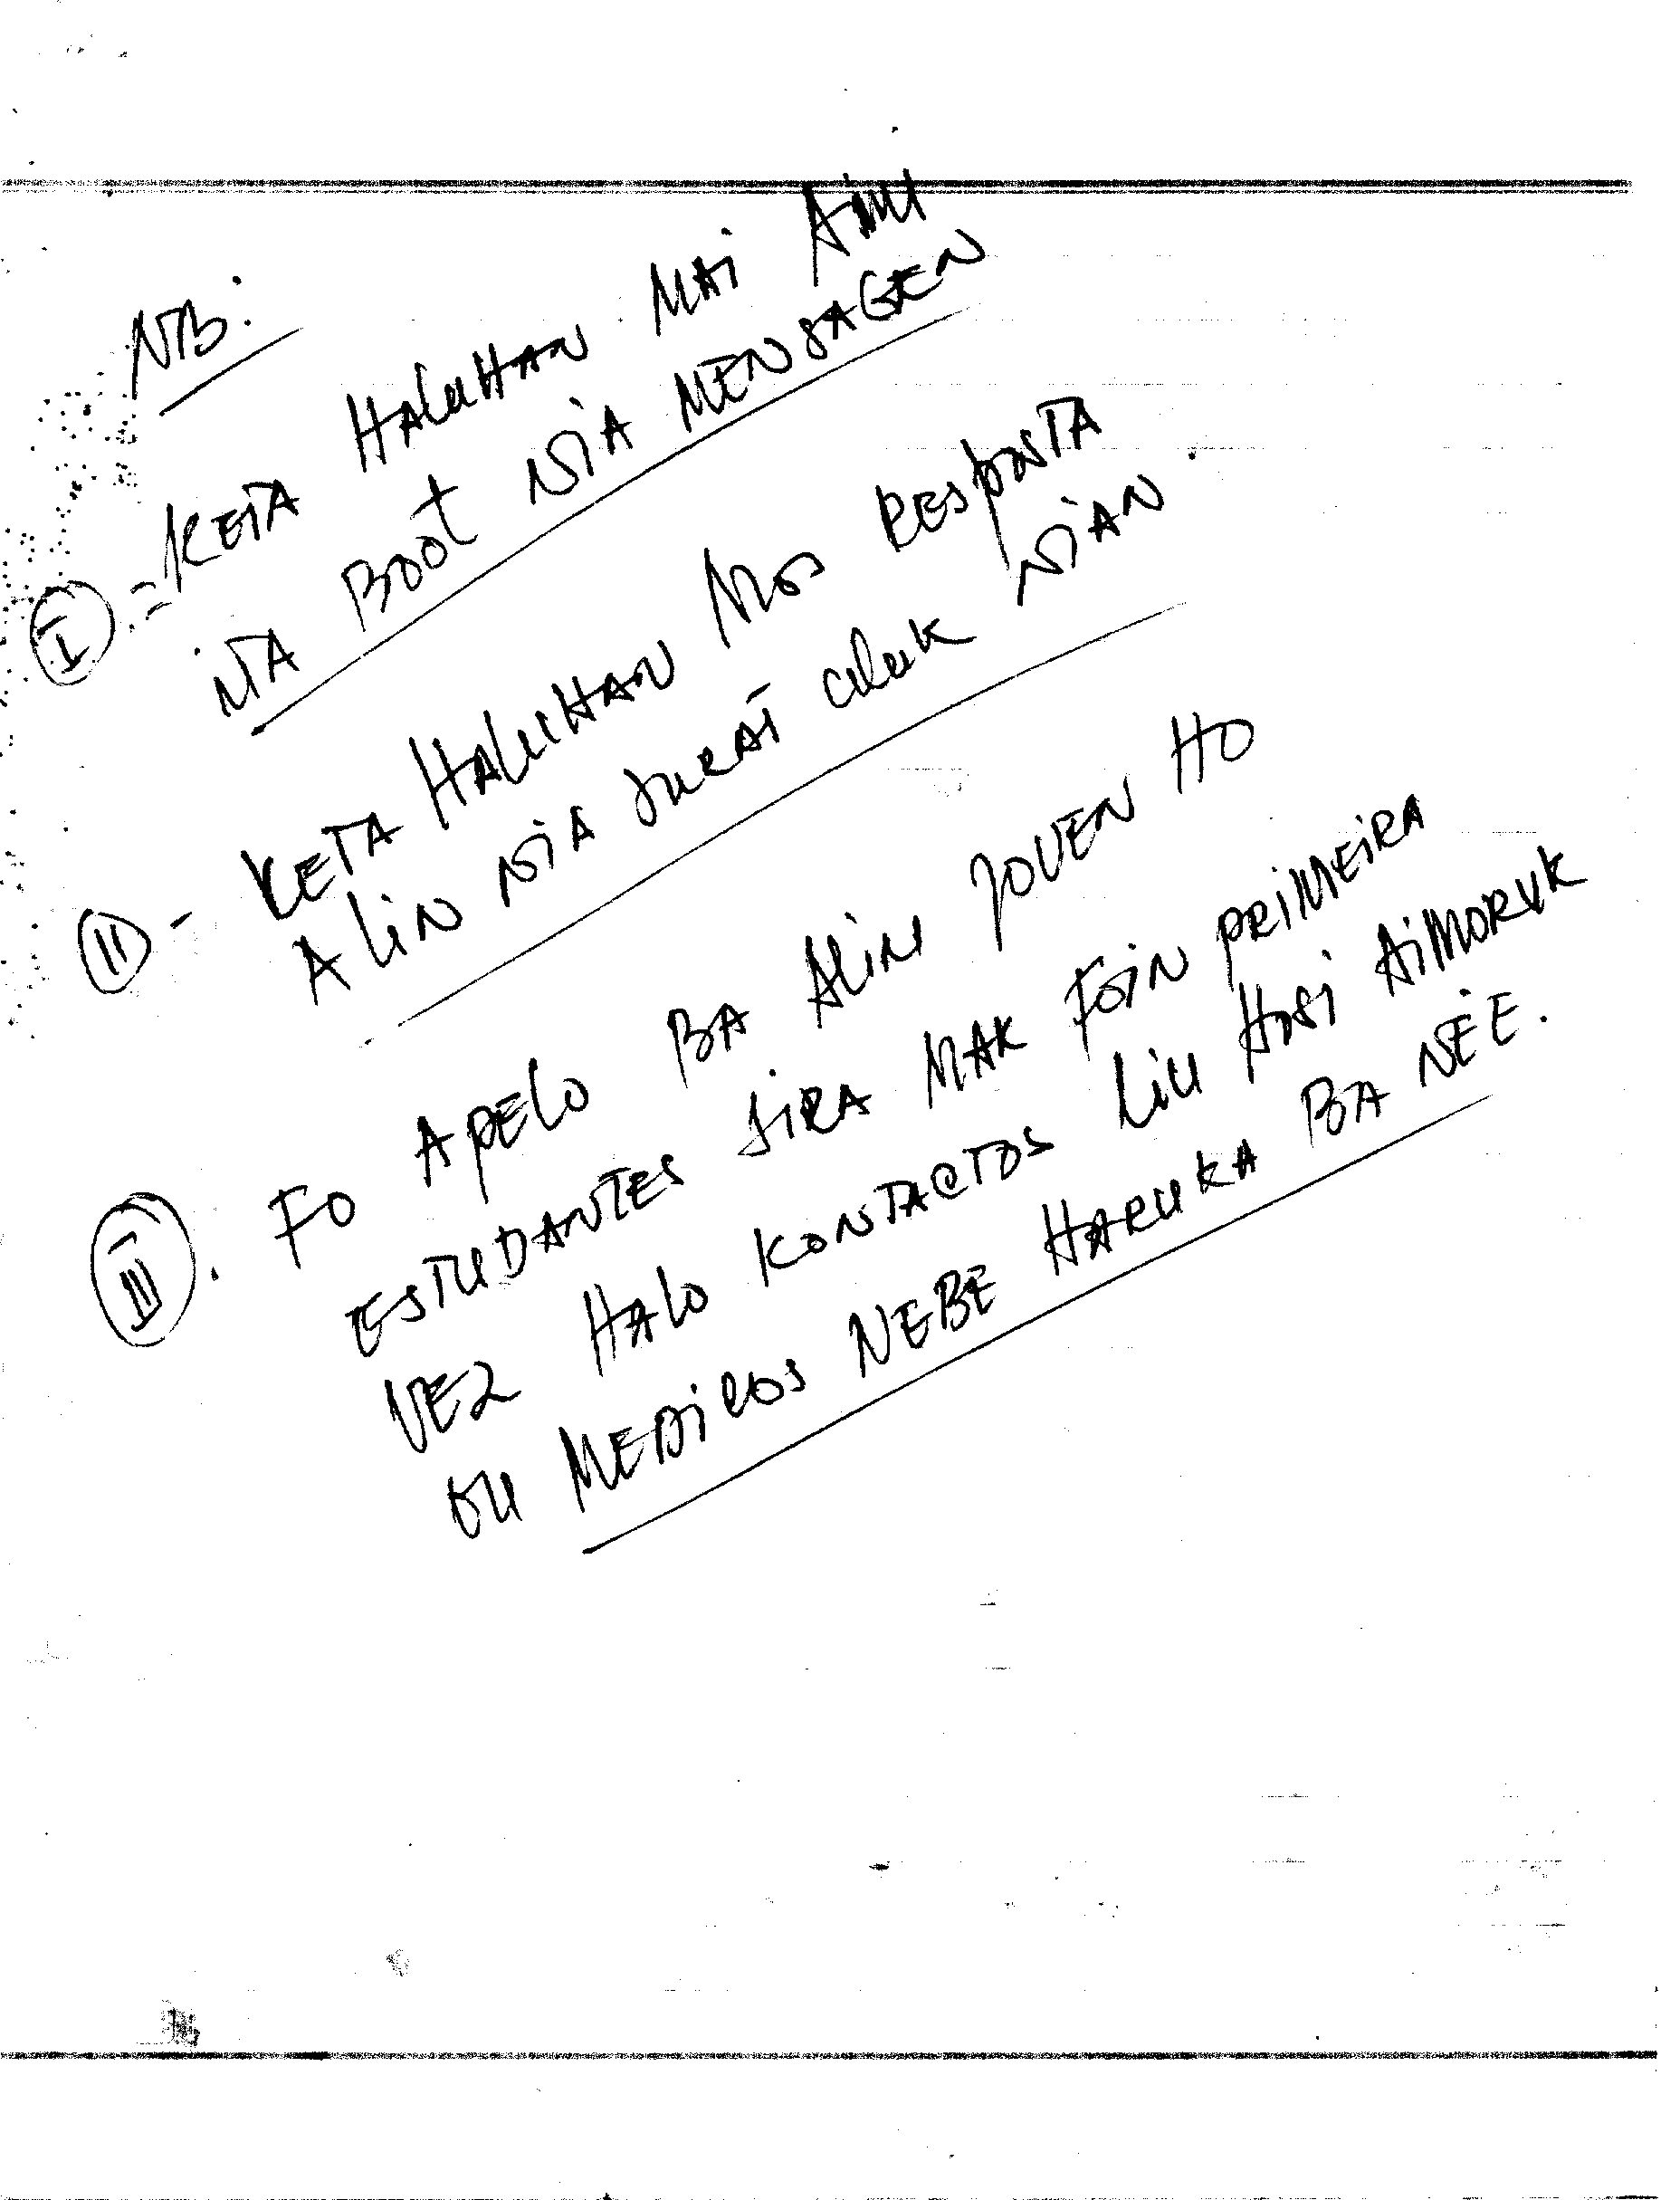 NB:
I = KETA HALUHAN MAI AMI
ITA BOOT NIA MENSAGEN
II - KETA HALUHAN MOS RESPOSTA
ALIN NIA SURAT ULUK NIAN.
III. FO APELO BA ALIN JOVEN HO
ESTUDANTES SIRA MAK FOIN PRIMEIRA
VEZ HALO KONTACTOS LIU HOSI AIMORUK
OU MEDICOS NEBE HARUKA BA NE'E.